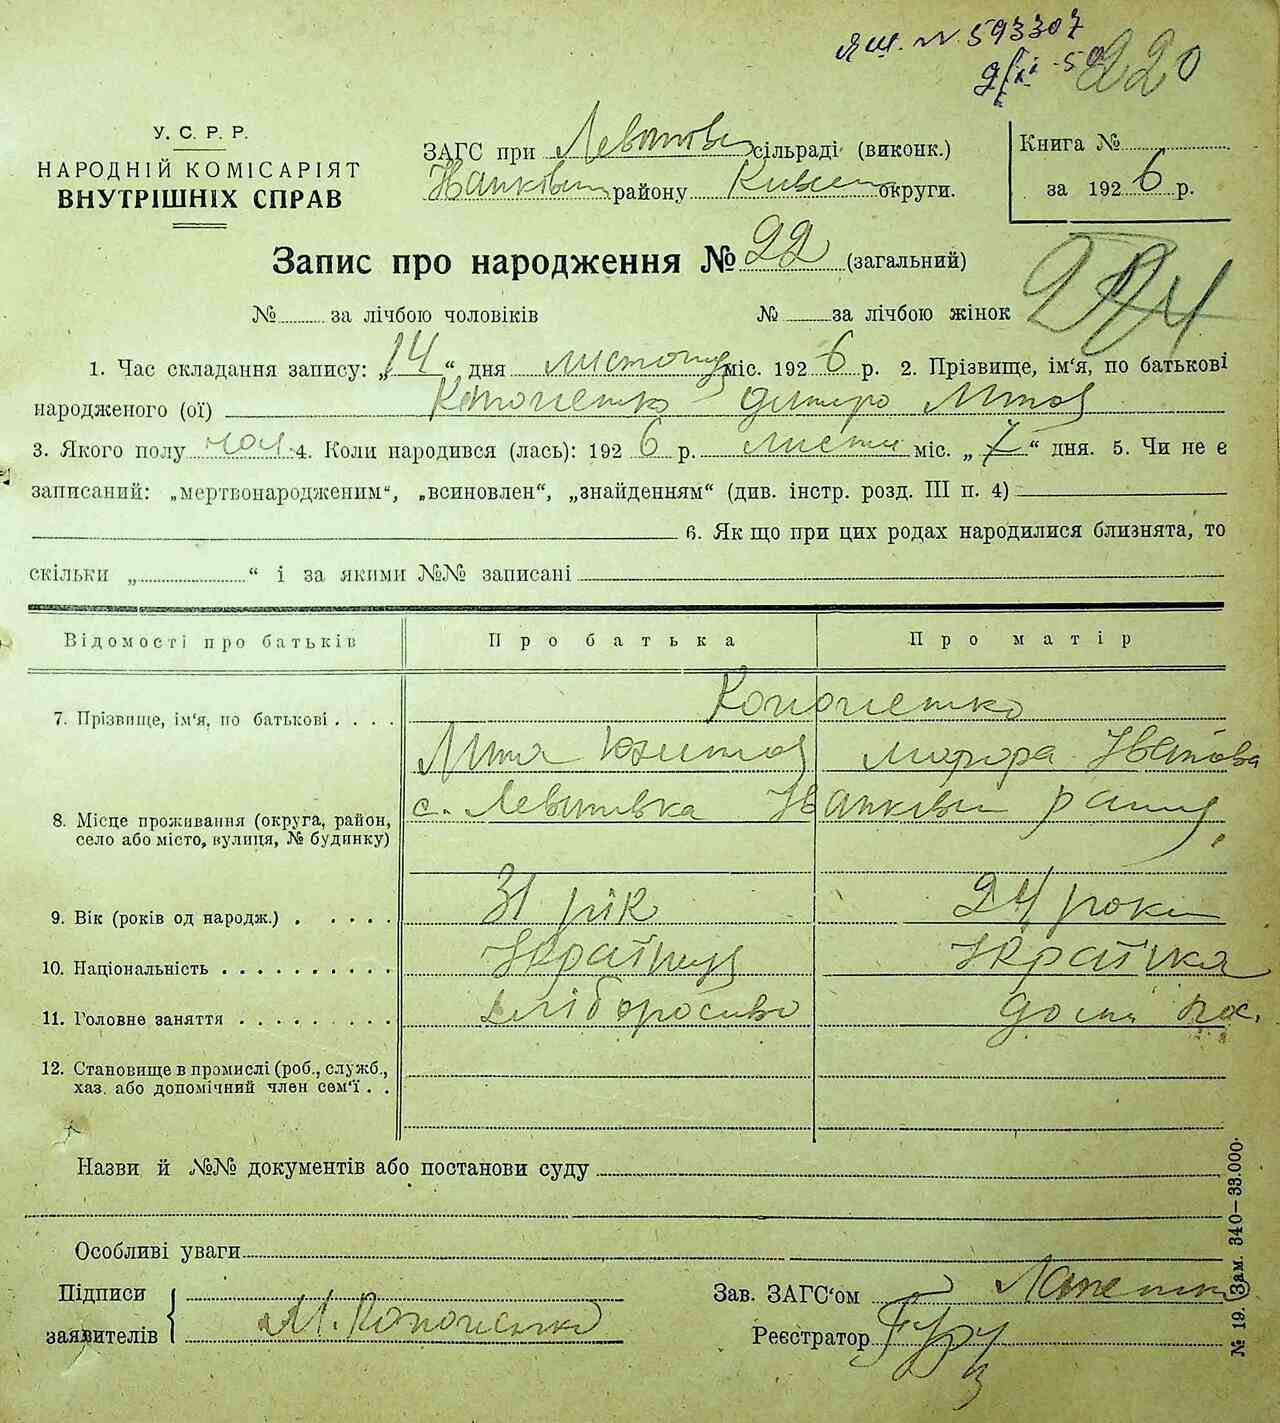 яш. № 593307
220
У. С. Р. Р.
НАРОДНІЙ КОМІСАРІЯТ
ВНУТРІШНІХ СПРАВ
ЗАГС при сільраді (виконк.)
району округи.
Книга №
за 1926 р.
Запис про народження № 22 (загальний)
№ за лічбою чоловіків № за лічбою жінок
1. Час складання запису: „14“ дня листопад міс. 1926 р. 2. Прізвище, ім‘я, по батькові
народженого (ої) Кононенко Дмитро
3. Якого полу чол 4. Коли народився (лась): 1926 р. листп міс. „7“ дня. 5. Чи не є
записаний: „мертвонародженим“, „всиновлен“, „знайденням“ (див. інстр. розд. III п. 4)
6. Як що при цих родах народилися близнята, то
скільки „ “ і за якими №№ записані
Відомості про батьків Про батька Про матір
7. Прізвище, ім‘я, по батькові Кононенко
Івáнова
8. Місце проживання (округа, район,
село або місто, вулиця, № будинку)
с. Левківка
9. Вік (років од народж.) 31 рік 24 роки
10. Національність Українец Українка
11. Головне заняття хлібороство дом. гос.
12. Становище в промислі (роб., служб.,
хаз. або допомічний член сем‘ї
Назви й №№ документів або постанови суду
Особливі уваги
Підписи
заявителів М. Кононенко
Зав. ЗАГС‘ом
Реєстратор
№ 19. Зам. 340—33.000.